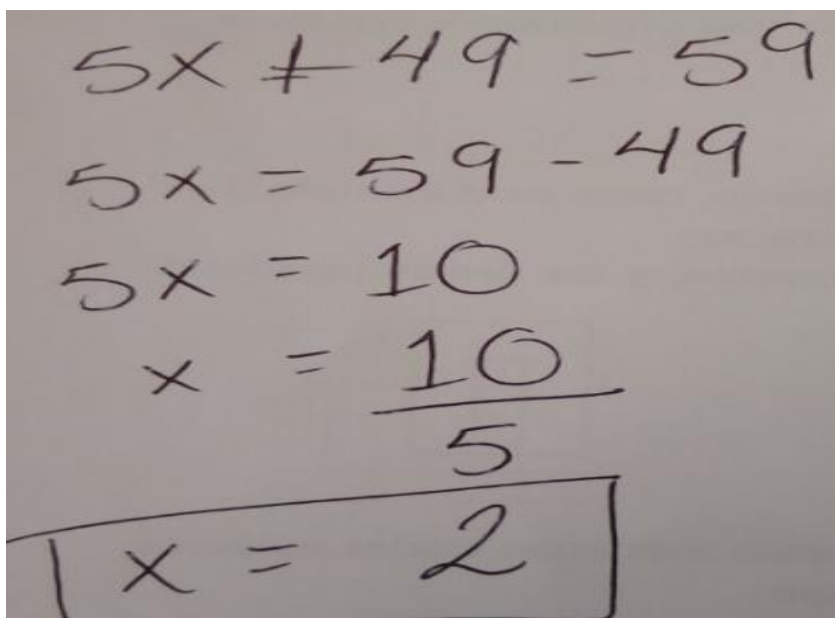 5x + 49 = 59
5x = 59 - 49
5x = 10
x = 10
5
x = 2